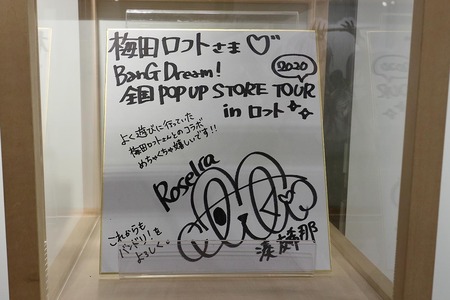 梅田ロフトさま♡
BanG Dream!
2020
全国 POP UP STORE TOUR
in ロフト
よく遊びに行っていた
梅田ロフトさんとのコラボ
めちゃくちゃ嬉しいです!!
Roselia
これからも
バンドリ!を
よろしく。
湊友希那